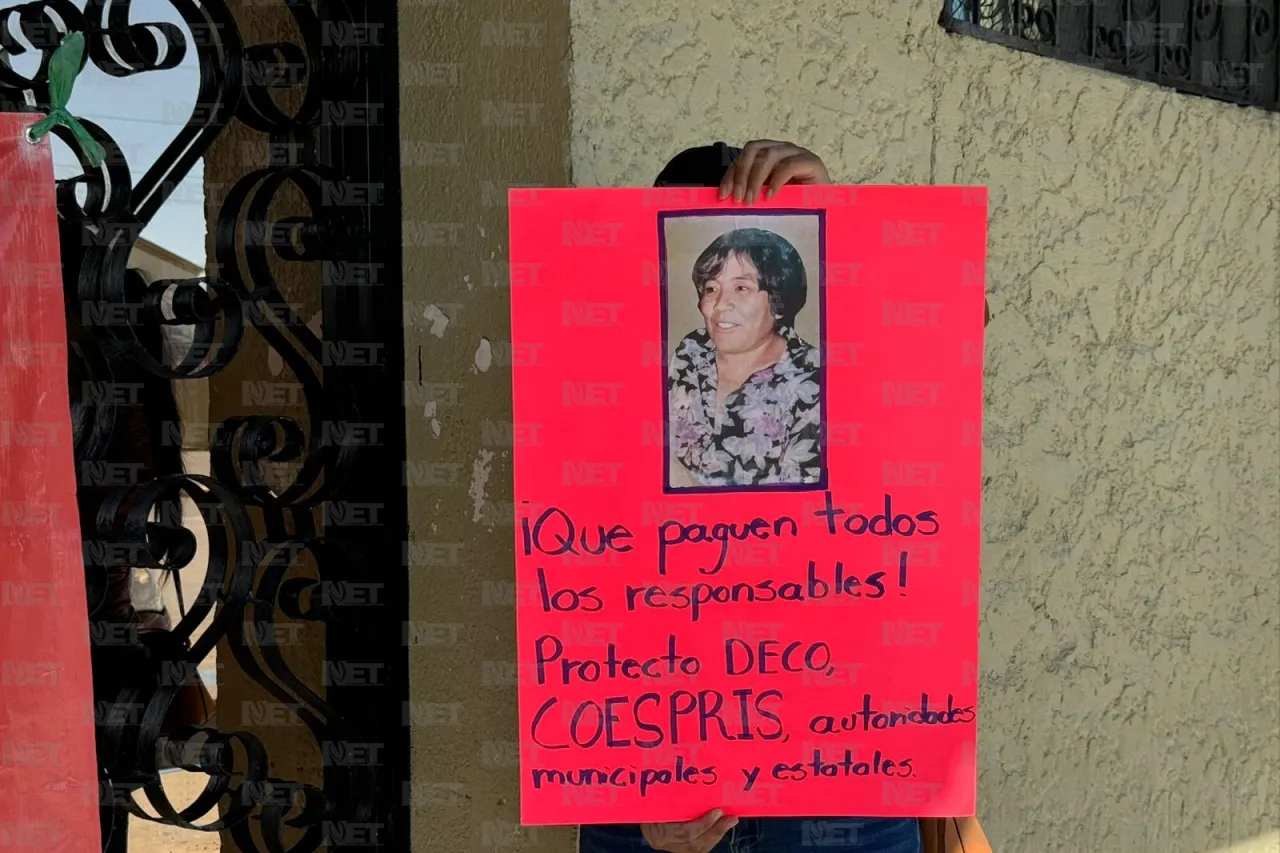 ¡Que paguen todos
los responsables!
Protecto DECO,
COESPRIS, autoridades
municipales y estatales.
NET